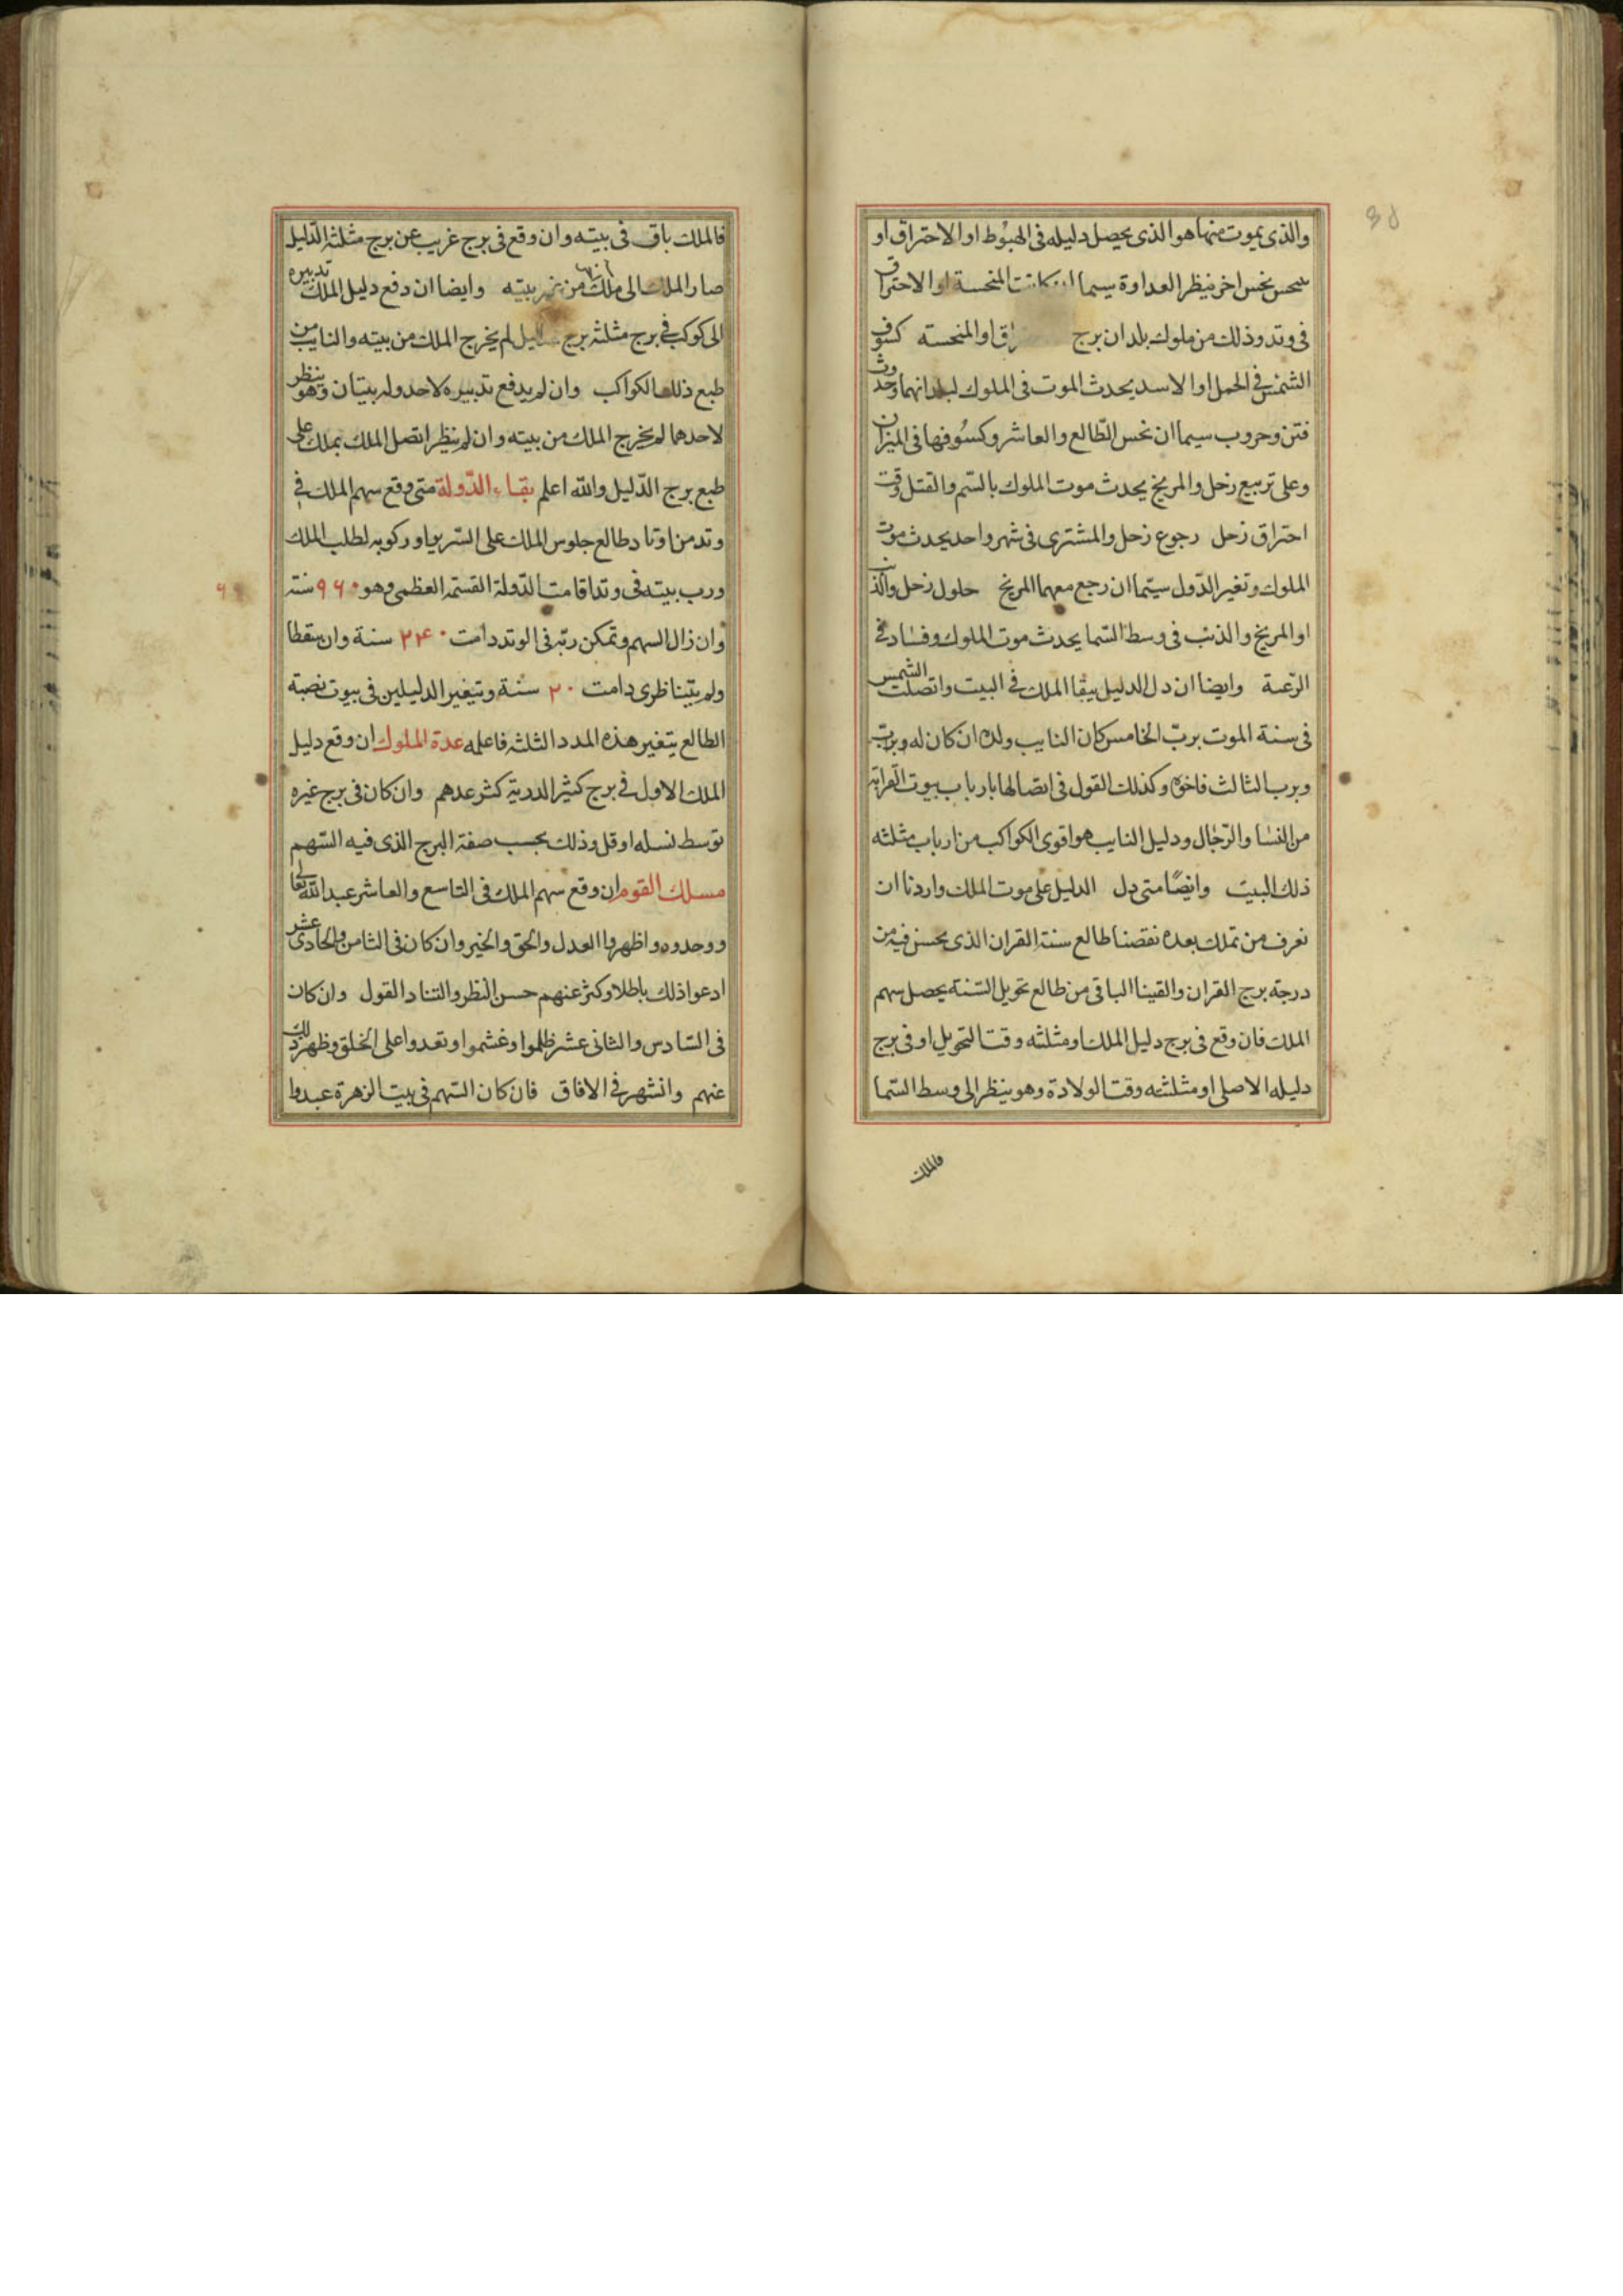 والذى يموت منها هو الذى يحصل دليله فى الهبوط او الاحتراق او
ينحس بنحس اخر ينظر العداوة سيما ان كانت المنحسة او الاحتراق
فى وتد وذلك من ملوك بلدان برج راق او المنحسته كسوف
الشمس فى الحمل او الاسد يحدث الموت فى الملوك لبلدانهما وحدوث
فتن وحروب سيما ان نحس الطالع والعاشر وكسوفها فى الميزان
وعلى تربيع زحل والمريخ يحدث موت الملوك بالسم والقتل وقت
احتراق زحل رجوع زحل والمشترى فى شهر واحد يحدث موت
الملوك وتغير الدول سيما ان رجع معهما المريخ حلول زحل والذنب
او المريخ والذنب فى وسط السما يحدث موت الملوك وفساد فى
الرعية وايضا ان دل الدليل ببقا الملك فى البيت واتصلت الشمس
فى سنة الموت برب الخامس كان النايب ولده ان كان له وبرب
وبرب الثالث فاخوه وكذلك القول فى اتصالها بارباب بيوت القرابة
من النسا والرجال ودليل النايب هو اقوى الكواكب من ارباب مثلثه
ذلك البيت وايضا متى دل الدليل على موت الملك واردنا ان
نعرف من تملك بعده نقصنا طالع سنة القران الذى يحسن فيه من
درجة برج القران والقينا الباقى من طالع تحويل السنة يحصل سهم
الملك فان وقع فى برج دليل الملك او مثلثه وقت التحويل او فى برج
دليله الاصلى او مثلثته وقت الولادة وهو ينظر الى وسط السما
فالملك
فالملك باق فى بيته وان وقع فى برج غريب عن برج مثلثة الدليل
صار الملك الى ملك من غير بيته وايضا ان دفع دليل الملك تدبيره
الى كوكب فى برج مثلثه برج الدليل لم يخرج الملك من بيته والنايب من
طبع ذلك الكواكب وان لم يدفع تدبيره لاحد وله بيتان وهو ينظر
لاحدهما لم يخرج الملك من بيته وان لم ينظر اتصل الملك بملك على
طبع برج الدليل والله اعلم بقاء الدولة متى وقع سهم الملك فى
وتد من اوتاد طالع جلوس الملك على السرير او ركوبه لطلب الملك
ورب بيته فى وتد اقامت الدولة القسمة العظمى وهو ٩٦٠ سنة
وان زال السهم وتمكن ربه فى الوتد دامت ٢٤٠ سنة وان سقطا
ولم يتيناظرى دامت ٢٠ سنة وبتغير الدليلين فى بيوت نصبة
الطالع يتغير هذه المدد الثلثة فاعلمه عدة الملوك ان وقع دليل
الملك الاول فى برج كثير الدرية كثر عدهم وان كان فى برج غيره
توسط نسله او قل وذلك بحسب صفة البرج الذى فيه السهم
مسلك القوم ان وقع سهم الملك فى التاسع والعاشر عبد الله تعا
ووحدوه واظهروا العدل والحق والخير وان كان فى الثامن والحادى عشر
ادعوا ذلك باطلا وكثر عنهم حسن النظر والتناد القول وان كان
فى السادس والثانى عشر ظلموا وغشموا وتعدوا على الخلق وظهر ذلك
عنهم وانشهر فى الافاق فان كان السهم فى بيت الزهرة عبدوا